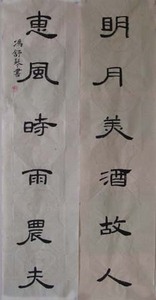 明月美酒故人
惠風時雨農夫
馮舒聚書